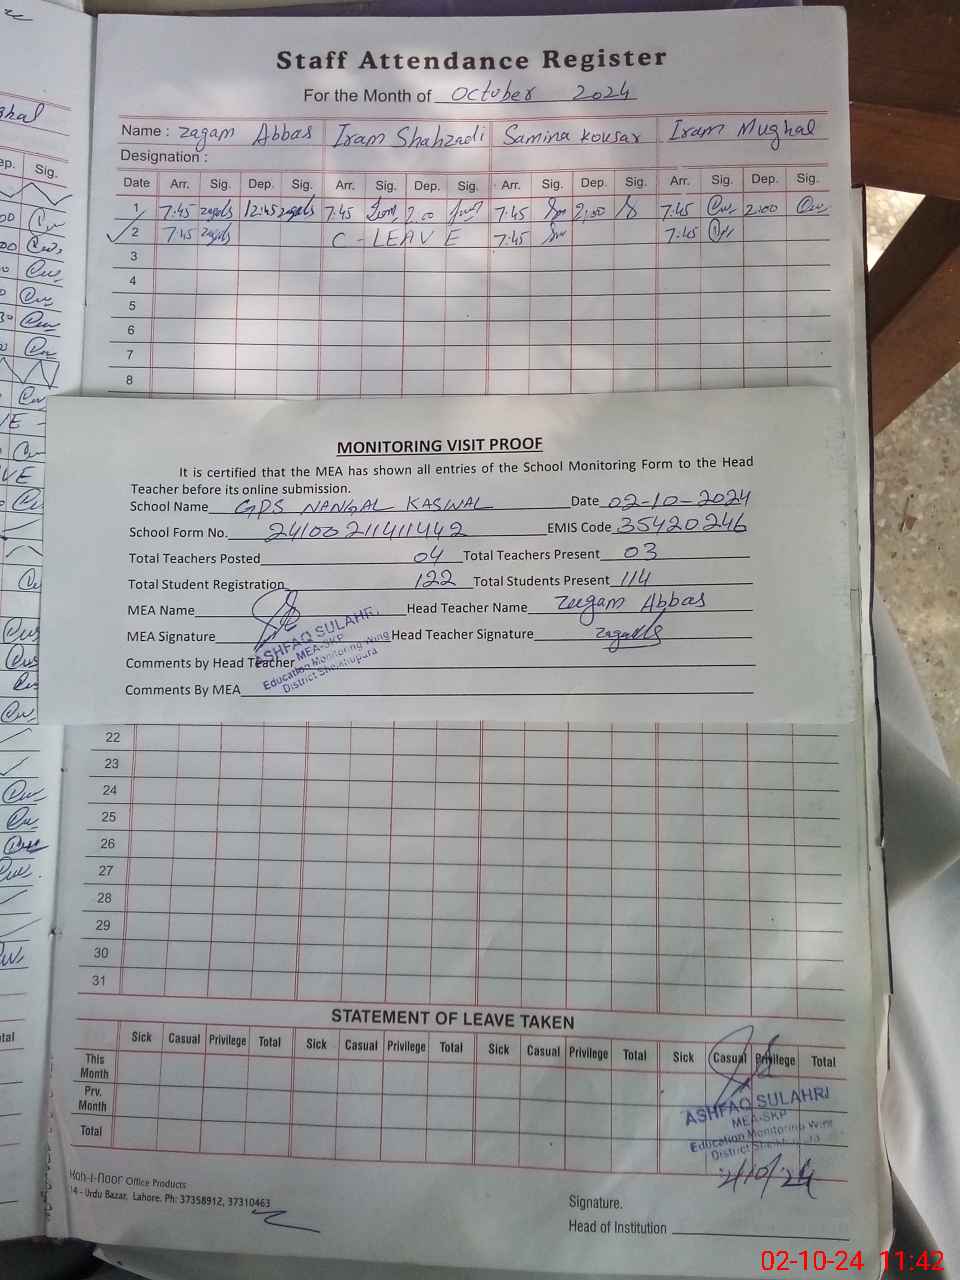 Staff Attendance Register
For the Month of October 2024
Name : Zagam Abbas Iram Shahzadi Samina Kousar Iram Mughal
Designation :
Date Arr. Sig. Dep. Sig. Arr. Sig. Dep. Sig. Arr. Sig. Dep. Sig. Arr. Sig. Dep. Sig.
1 7:45 12:45 7:45 2:00 7:45 2:00 7:45 2:00
2 7:45 C-LEAVE 7:45 7:45
3
4
5
6
7
8
MONITORING VISIT PROOF
It is certified that the MEA has shown all entries of the School Monitoring Form to the Head
Teacher before its online submission.
School Name GPS NANGAL KASWAL Date 02-10-2024
School Form No. 24100211411442 EMIS Code 35420246
Total Teachers Posted 04 Total Teachers Present 03
Total Student Registration 122 Total Students Present 114
MEA Name Head Teacher Name Zeegam Abbas
MEA Signature Head Teacher Signature
ASHFAQ SULAHRI
MEA-SKP
Education Monitoring Wing
District Sheikhupura
Comments by Head Teacher
Comments By MEA
22
23
24
25
26
27
28
29
30
31
STATEMENT OF LEAVE TAKEN
Sick Casual Privilege Total Sick Casual Privilege Total Sick Casual Privilege Total Sick Casual Privilege Total
This Month
Prv. Month
Total
ASHFAQ SULAHRI
MEA-SKP
Education Monitoring Wing
District Sheikhupura
2/10/24
Koh-i-Noor Office Products
14 - Urdu Bazar, Lahore. Ph: 37358912, 37310463
Signature.
Head of Institution
02-10-24 11:42